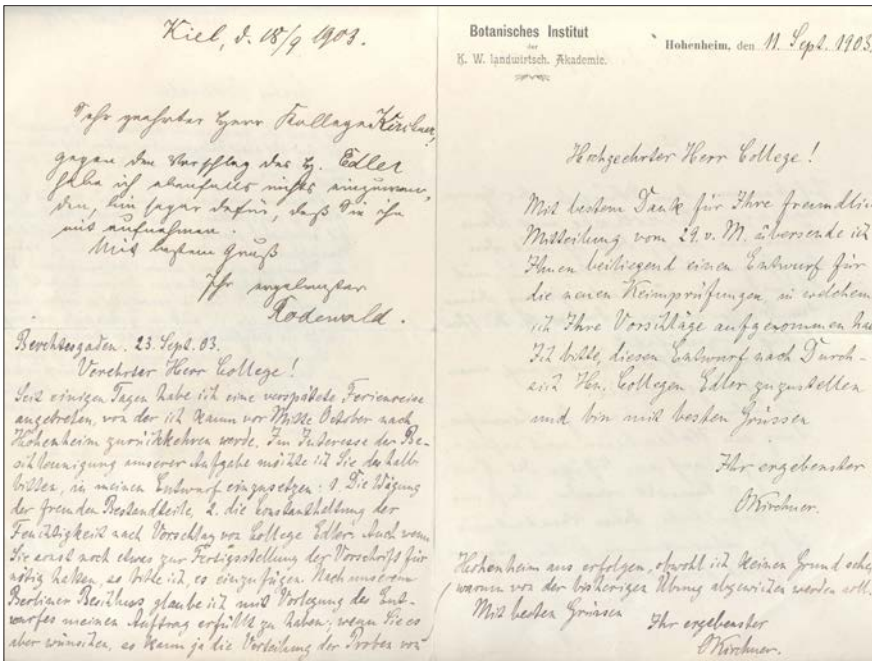 Kiel, d. 18/9 1903.
Sehr geehrter Herr Kollege Kirchner,
gegen den Vorschlag des H. Edler
habe ich ebenfalls nichts einzuwen-
den, bin sogar dafür, daß Sie ihn
mit aufnehmen.
Mit bestem Gruß
Ihr ergebenster
Rodewald.
Berchtesgaden. 23. Sept. 03.
Verehrter Herr College!
Seit einigen Tagen habe ich eine verspätete Ferienreise
angetreten, von der ich kaum vor Mitte October nach
Hohenheim zurückkehren werde. Im Interesse der Be-
schleunigung unserer Aufgabe möchte ich Sie deshalb
bitten, in meinen Entwurf einzusetzen: 1. Die Wägung
der fremden Bestandteile, 2. die Constanthaltung der
Feuchtigkeit nach Vorschlag von College Edler. Auch wenn
Sie sonst noch etwas zur Fertigstellung der Vorschrift für
nötig halten, so bitte ich, es einzufügen. Nach unserem
Berliner Beschluss glaube ich mit Vorlegung des Ent-
wurfes meinen Auftrag erfüllt zu haben; wenn Sie es
aber wünschen, so kann ja die Verteilung der Proben von
Botanisches Institut
der
K. W. landwirtsch. Akademie.
Hohenheim, den 11. Sept. 1903.
Hochgeehrter Herr College!
Mit bestem Dank für Ihre freundlic
Mitteilung vom 29. v. M. übersende ich
Ihnen beiliegend einen Entwurf für
die neuen Keimprüfungen, in welchem
ich Ihre Vorschläge aufgenommen hab
Ich bitte, diesen Entwurf nach Durch-
sicht Hn. Collegen Edler zuzustellen
und bin mit besten Grüssen
Ihr ergebenster
OKirchner.
Hohenheim aus erfolgen, obwohl ich keinen Grund sehe,
warum von der bisherigen Übung abgewichen werden soll.
Mit besten Grüssen
Ihr ergebenster
OKirchner.